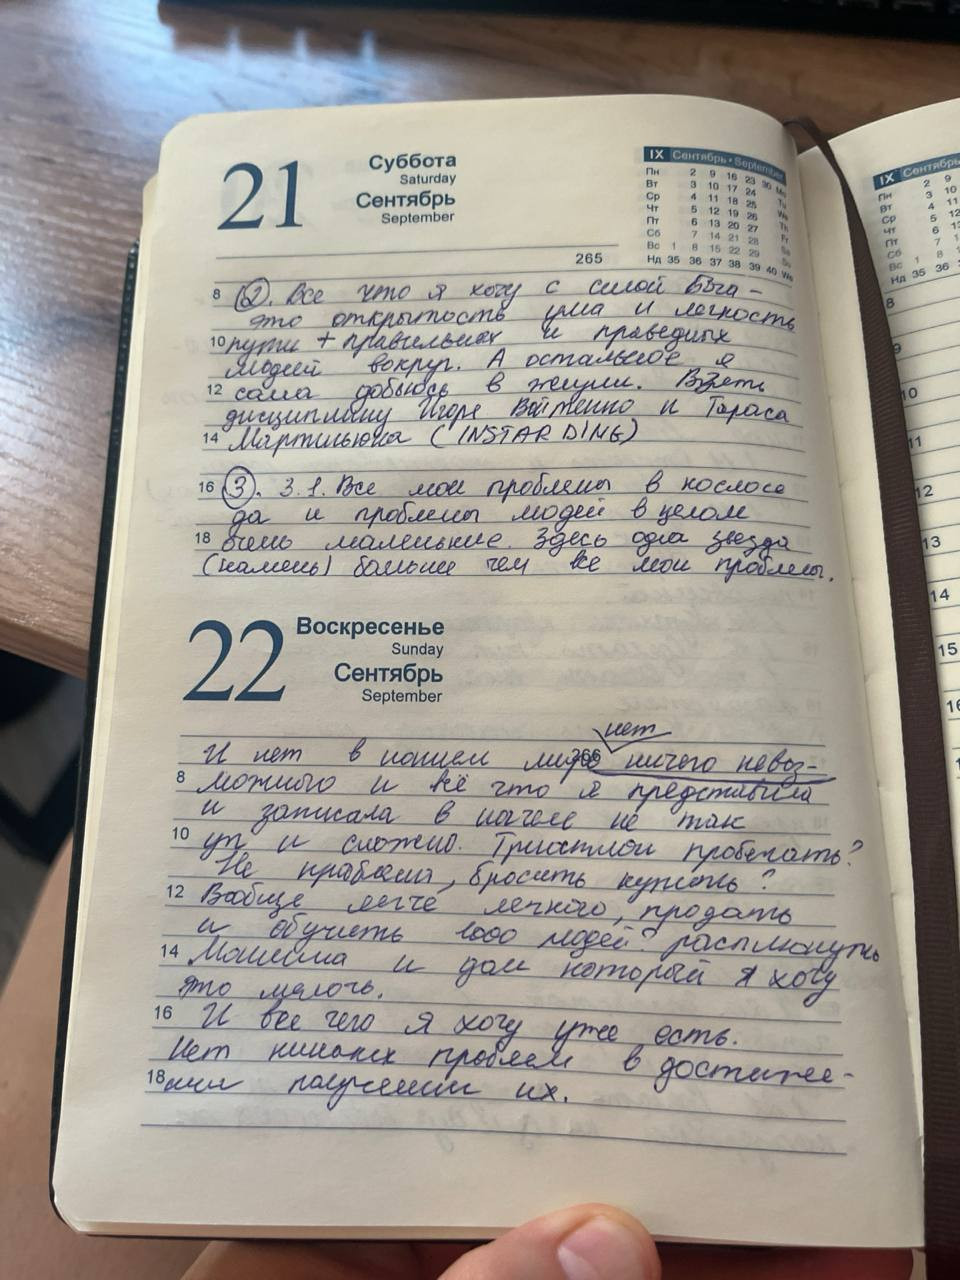 21
Суббота
Saturday
Сентябрь
September
IX Сентябрь • September
Пн 2 9 16 23 30 Mo
Вт 3 10 17 24 Tu
Ср 4 11 18 25 We
Чт 5 12 19 26 Th
Пт 6 13 20 27 Fr
Сб 7 14 21 28 Sa
Вс 1 8 15 22 29 Su
Нд 35 36 37 38 39 40 We
265
8 2. Все что я хочу с силой Бога -
это открытость ума и легкость
10 пути + правильных и праведных
людей вокруг. А остальное я
12 сама добьюсь в жизни. Взять
дисциплину Игоря Войтенко и Тараса
14 Мартынюка (INSTARDING)
16 3. 3.1. Все мои проблемы в космосе
да и проблемы людей в целом
18 очень маленькие. Здесь одна звезда
(камень) больше чем все мои проблемы.
22
Воскресенье
Sunday
Сентябрь
September
266
нет
И нет в нашем мире ничего невоз-
8 можного и всё что я представила
и записала в начале не так
10 уж и сложно. Триатлон пробежать?
Не проблема, бросить курить?
12 Вообще легче легкого, продать
и обучить 1000 людей?
14 Машина и дом который я хочу
это мелочь.
16 И все чего я хочу уже есть.
Нет никаких проблем в достиже-
18 нии получении их.
IX Сентябрь
Пн 2 9
Вт 3 10
Ср 4 11
Чт 5 12
Пт 6 13
Сб 7
Вс 1 8
Нд 35 36
8
9
10
11
12
13
14
15
16